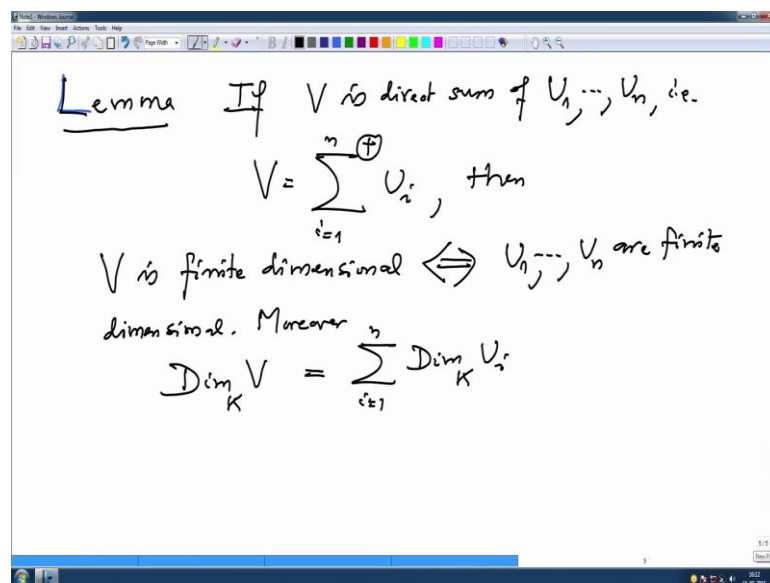 Note1 - Windows Journal
File Edit View Insert Actions Tools Help
Page Width
B I
Lemma If V is direct sum of U₁, ..., Uₙ, i.e.
V = ∑ᵢ₌₁ⁿ ⊕ Uᵢ, then
V is finite dimensional ⟺ U₁, ..., Uₙ are finite
dimensional. Moreover
Dim_K V = ∑ᵢ₌₁ⁿ Dim_K Uᵢ
5/5
5
New Pa
16:12